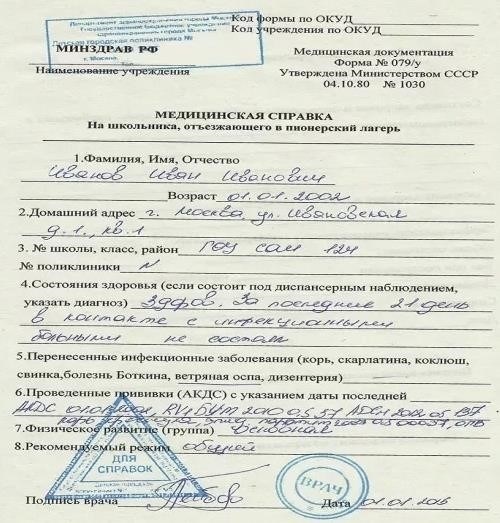 Департамент здравоохранения города Москвы
Государственное бюджетное учреждение
здравоохранения города Москвы
Детская городская поликлиника №
г. Москва, Тел.
Код формы по ОКУД
Код учреждения по ОКУД
МИНЗДРАВ РФ
Наименование учреждения
Медицинская документация
Форма № 079/у
Утверждена Министерством СССР
04.10.80 № 1030
МЕДИЦИНСКАЯ СПРАВКА
На школьника, отъезжающего в пионерский лагерь
1.Фамилия, Имя, Отчество
Иванов Иван Иванович
Возраст 01.01.2002
2.Домашний адрес г. Москва, ул. Ивановская
д.1., кв.1
3. № школы, класс, район ГОУ СОШ 124
№ поликлиники N
4.Состояния здоровья (если состоит под диспансерным наблюдением,
указать диагноз) Здоров. За последние 21 день
в контакте с инфекционными
больными не состоял
5.Перенесенные инфекционные заболевания (корь, скарлатина, коклюш,
свинка,болезнь Боткина, ветряная оспа, дизентерия)
6.Проведенные прививки (АКДС) с указанием даты последней
АКДС
7.Физическое развитие (группа) Основная
8.Рекомендуемый режим общий
ДЛЯ
СПРАВОК
ВРАЧ
Подпись врача
Дата 01.01.2016